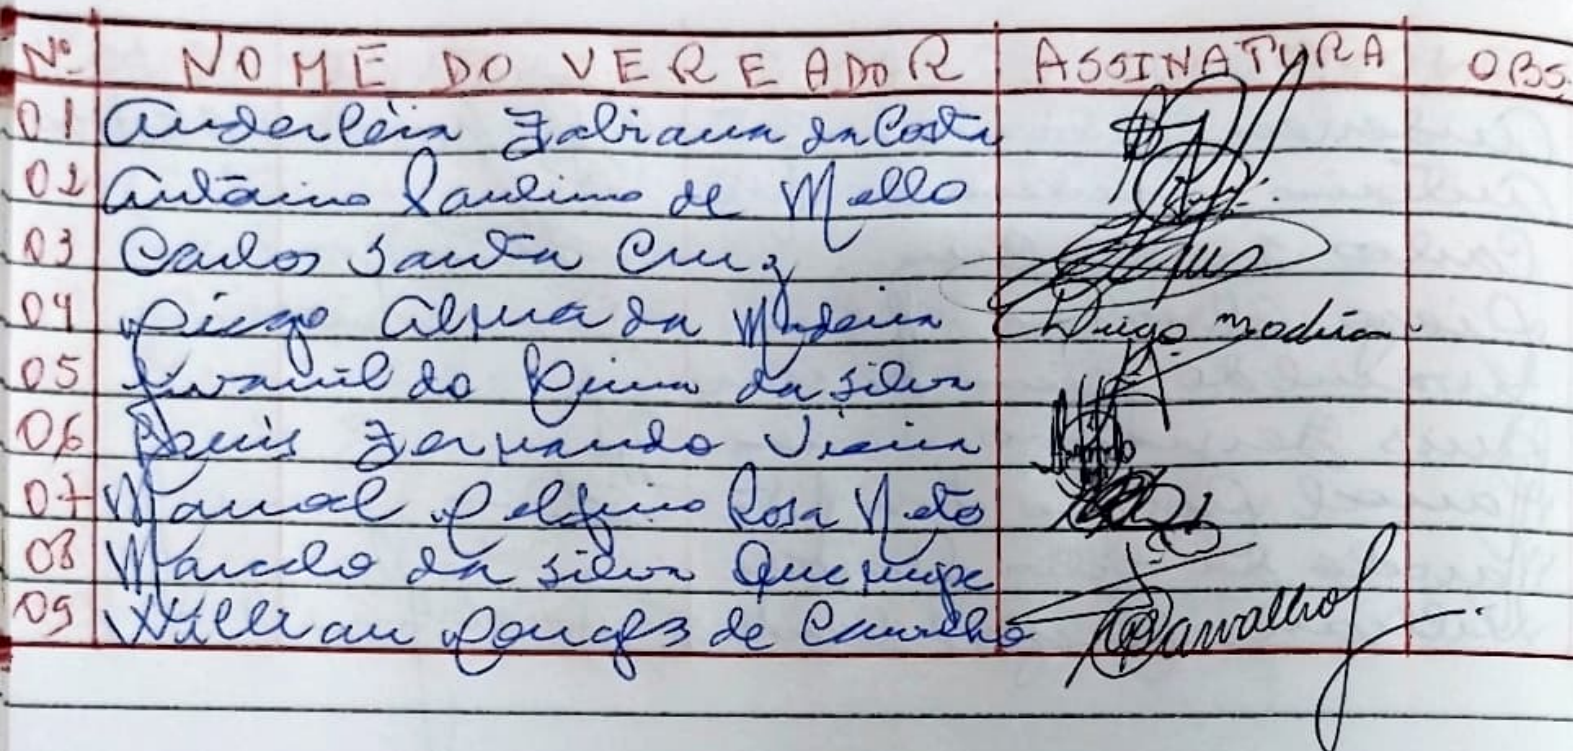 Nº NOME DO VEREADOR ASSINATURA OBS.
01 Anderléia Fabiana da Costa
02 Antônio Paulino de Mello
03 Carlos Santa Cruz
04 Diego da Madeira Diego Madeira
05 da Silva
06 Luis Fernando Vieira
07 Manoel Delfino Rosa Neto
08 Marcelo da Silva
09 Willian de Carvalho Carvalho